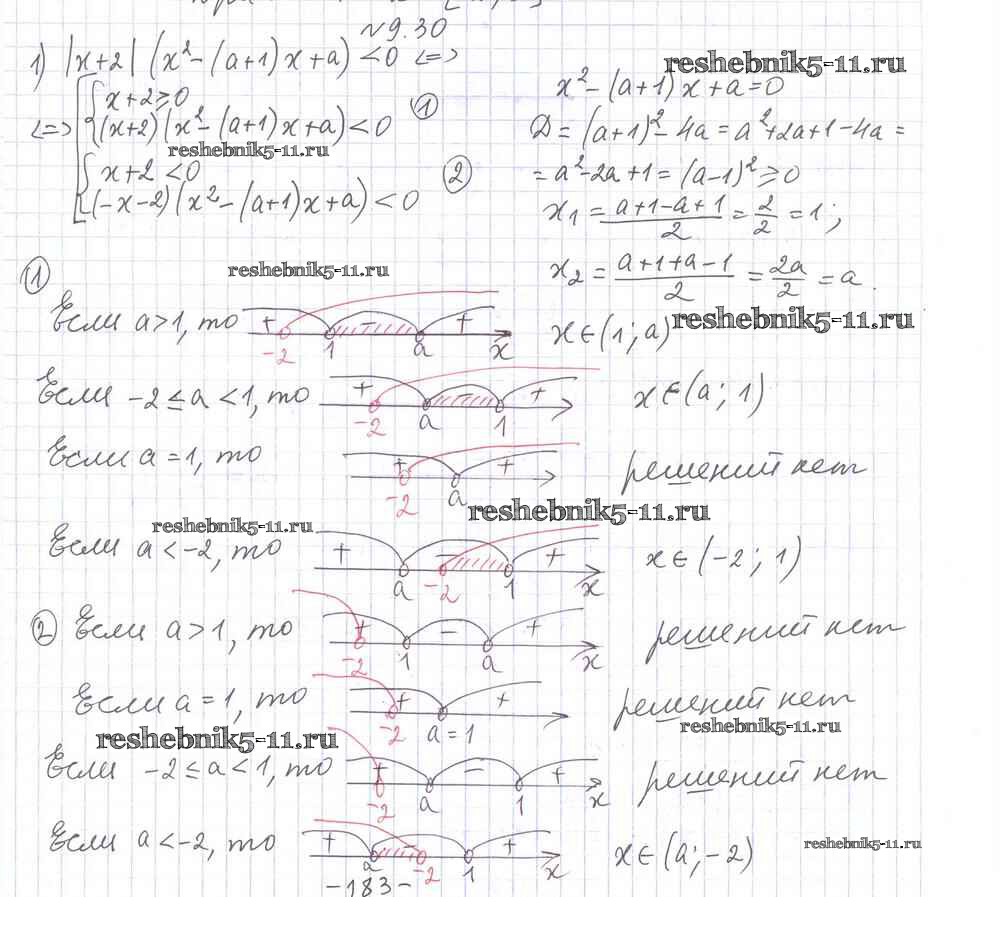 №9.30
1) |x+2| (x²-(a+1)x+a) <0 <=>
reshebnik5-11.ru
<=> [ { x+2≥0
(x+2)(x²-(a+1)x+a)<0 ①
reshebnik5-11.ru
{ x+2<0
(-x-2)(x²-(a+1)x+a)<0 ②
x²-(a+1)x+a=0
D=(a+1)²-4a=a²+2a+1-4a=
=a²-2a+1=(a-1)²≥0
x₁=(a+1-a+1)/2=2/2=1;
x₂=(a+1+a-1)/2=2a/2=a.
① reshebnik5-11.ru
Если a>1, то + - + -2 1 a x x∈(1; a) reshebnik5-11.ru
Если -2≤a<1, то + - + -2 a 1 x∈(a; 1)
Если a=1, то + + -2 a решений нет
reshebnik5-11.ru reshebnik5-11.ru
Если a<-2, то + - + a -2 1 x x∈(-2; 1)
② Если a>1, то + - + -2 1 a x решений нет
Если a=1, то + + -2 a=1 решений нет
reshebnik5-11.ru reshebnik5-11.ru
Если -2≤a<1, то - + -2 a 1 x решений нет
Если a<-2, то + - + a -2 1 x x∈(a;-2) reshebnik5-11.ru
-183-